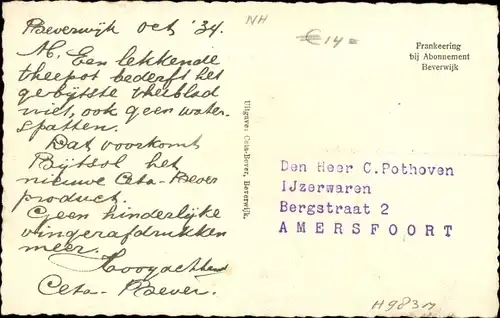 Beverwijk Oct '34.
M. Een lekkende
theepot bederft het
gebijtste theeblad
niet, ook geen water-
spatten.
Dat voorkomt
Bijtsol het
nieuwe Ceta-Bever
product.
Geen hinderlijke
vingerafdrukken
meer.
Hoogachtend
Ceta-Bever.
Uitgave: Ceta-Bever, Beverwijk.
NH
€ 14 =
Frankeering
bij Abonnement
Beverwijk
Den Heer C.Pothoven
IJzerwaren
Bergstraat 2
AMERSFOORT